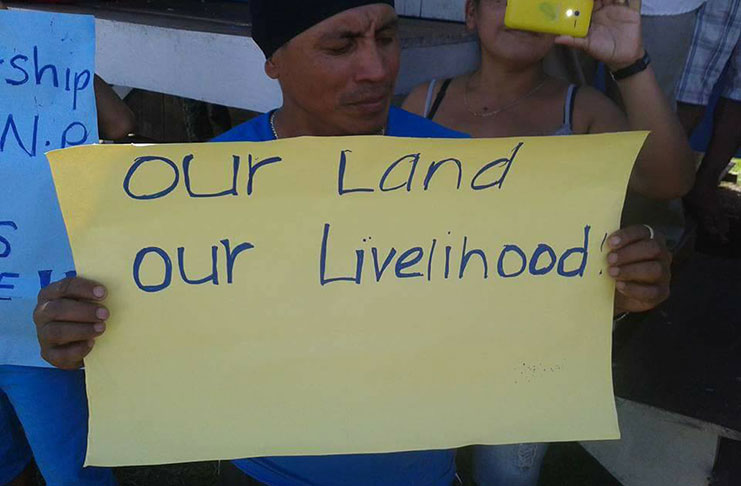 ship
N.P
our Land
our Livelihood!